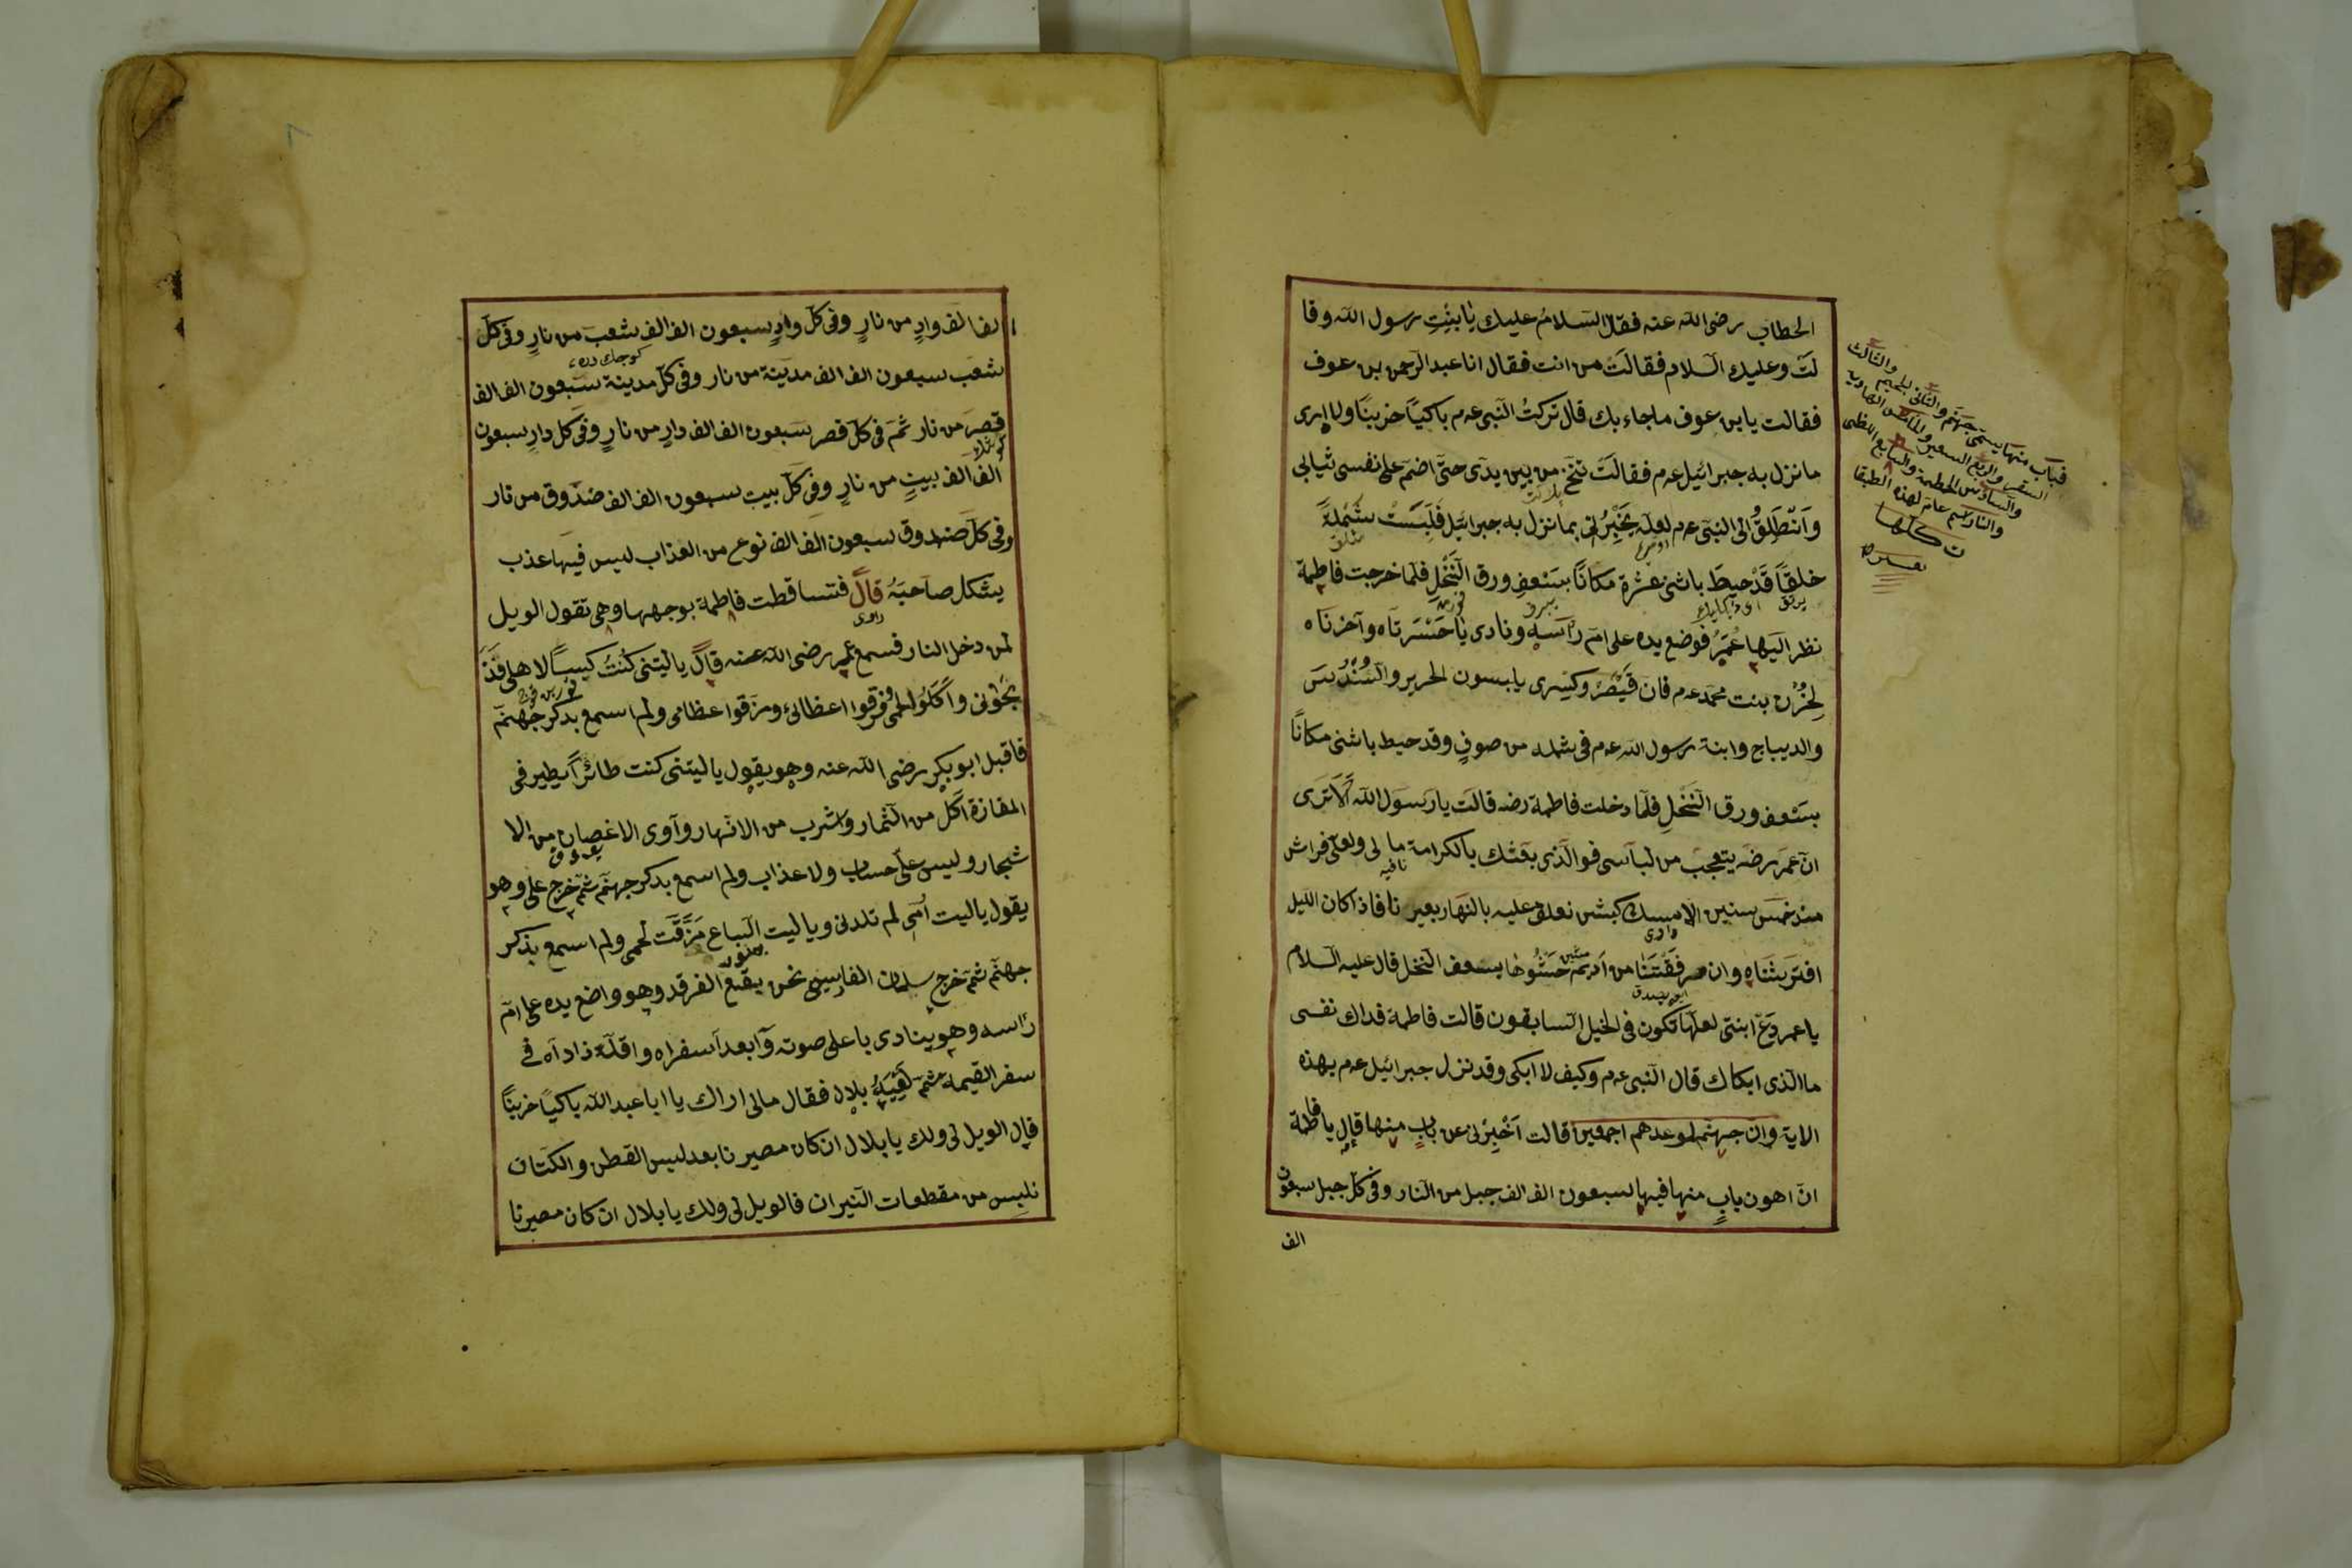 الخطاب رضى الله عنه فقال السلامُ عليك يا بِنْتِ رسول الله وقا
لت وعليك السلام فقالَتْ من انت فقال انا عبد الرحمن بن عوف
فقالت يا بن عوف ما جاء بك قال تركتُ النبى عم باكياً حزيناً ولا ادرى
ما نزل به جبرائيل عم فقالَتْ تنَحَّ من بين يدى حتى اضم على نفسى ثيابى
وَاَنْطَلِقُ الى النبى عم لعله يُخْبِرُنى بما نزل به جبرائيل فَلَبِسَتْ شَمْلةً
خلقاً قَدْ حِيطَ باثنى عشرة مكاناً بسَعْفِ ورق النَّخْلِ فلما خرجت فاطمة
نظر اليها عُمَرُ فوضع يده على ام رأسه ونادى يا حَسْرَتَاه وآحزنَاه
لِحُزْنِ بنت محمد عم فان قَيْصَرَ وكِسْرى يلبسون الحرير والسُنْدُسَ
والديباج وابنة رسول الله عم فى شمله من صوفٍ وقد حيط باثنى مكاناً
بسَعْفِ ورق النَخْلِ فلما دخلت فاطمة رضه قالت يا رسول الله اَلاَ تَرَى
انّ عمر رضه يتعجب من لباسى فوالذى بعثك بالكرامة ما لى ولعلى فراش
منذ خمس سنين الا مسك كبش نعلف عليه بالنهار بعيرنا فاذا كان الليل
افترشناه وان مرفقتنا من اَدِيمٌ حَشْوُها بسعف النخل قال عليه السلام
يا عمر دَعْ ابنتى لعلّها تكون فى الخيل السابقون قالت فاطمة فداك نفسى
ما الذى ابكاك قال النبى عم وكيف لا ابكى وقد نزل جبرائيل عم بهذه
الاية وان جهنم لموعدهم اجمعين قالت اَخْبِرْنى عن بابٍ منها قال يا فاطمة
انّ اهون بابٍ منها فيها سبعون الف الف جبل من النار وفى كل جبل سبعون
الف
فباب منها يسمى جهنم والثانى والثالث
السقر والرابع السعير والخامس الهاوية
والسادس الحطمة والسابع اللظى
والنار اسم عام لهذه الطبقا
ت كلها
الف الف وادٍ من نارٍ وفى كل وادٍ سبعون الف الف شعبَ من نارٍ وفى كل
شعب سبعون الف الف مدينة من نار وفى كل مدينة سبعون الف الف
قصرَ من نار ثم فى كل قصر سبعون الف الف دارٍ من نارٍ وفى كل دارٍ سبعون
الف الف بيتٍ من نارٍ وفى كل بيت سبعون الف الف صندوق من نار
وفى كل صندوق سبعون الف الف نوع من العذاب ليس فيها عذب
يشكل صاحبَهُ قال فتساقطت فاطمة بوجهها وهى تقول الويل
لمن دخل النار فسمع عمر رضى الله عنه قال يا ليتنى كنتُ كبيساً لاهلى فذَ
بَحُونى واَكَلُوا لحمى وفرقوا اعظائى ومزقوا عظامى ولم اسمع بذكر جهنم
فاقبل ابو بكر رضى الله عنه وهو يقول يا ليتنى كنت طائراً يطير فى
المفازة اَكل من الثمار واشرب من الانهار وآوى الاغصان من الا
شجار وليس علىّ حساب ولا عذاب ولم اسمع بذكر جهنم ثم خرج على وهو
يقول يا ليت اُمى لم تلدنى ويا ليت السباع مَزَّقَت لحمى ولم اسمع بذكر
جهنم ثم خرج سلمان الفارسى نحن بقيع الفرقد وهو واضع يده على ام
رأسه وهو ينادى باعلى صوته وآبعد آسفراه واقلّة زاداه فى
سفر القيمة ثم لَقِيَهُ بلال فقال مالى اراك يا ابا عبد الله باكياً حزيناً
قال الويل لى ولك يا بلال ان كان مصيرنا بعد لبس القطن والكتان
نلبس من مقطعات النيران فالويل لى ولك يا بلال ان كان مصيرنا